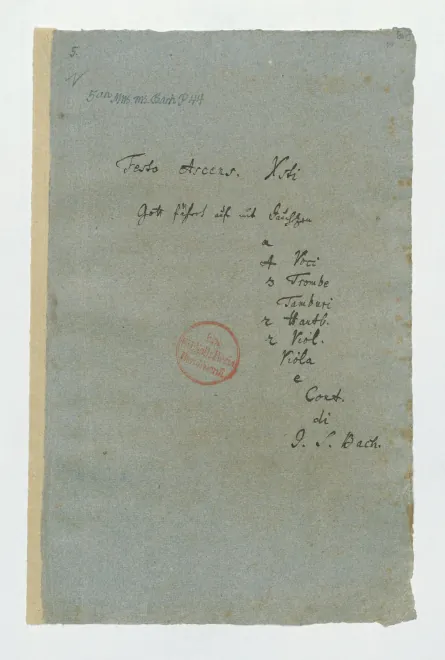 5.
5 an Mus. ms. Bach P 44
Festo Ascens. Xsti
Gott fähret auf mit Jauchzen
a
4 Voci
3 Trombe
Tamburi
2 Hautb.
2 Viol.
Viola
e
Cont.
di
J. S. Bach.
Ex